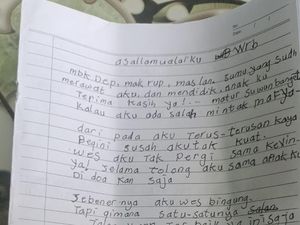 asallamualai'ku Wrb
mbk Dep, mak rup, mas lan, sumu yang sudh
merawat aku, dan mendidik, anak ku
Terima kasih ya! -- matur suwun banget
kalau aku ada salah mintak ma'ap ya-
dari pada aku Terus-terusan kaya
Begini susah aku tak kuat.
wes aku Tak pergi sama keyin-
ya! selama tolong aku sama anak ku
Di doa kan saja
Sebener nya aku wes bingung.
Tapi gimana satu-satunya Salan